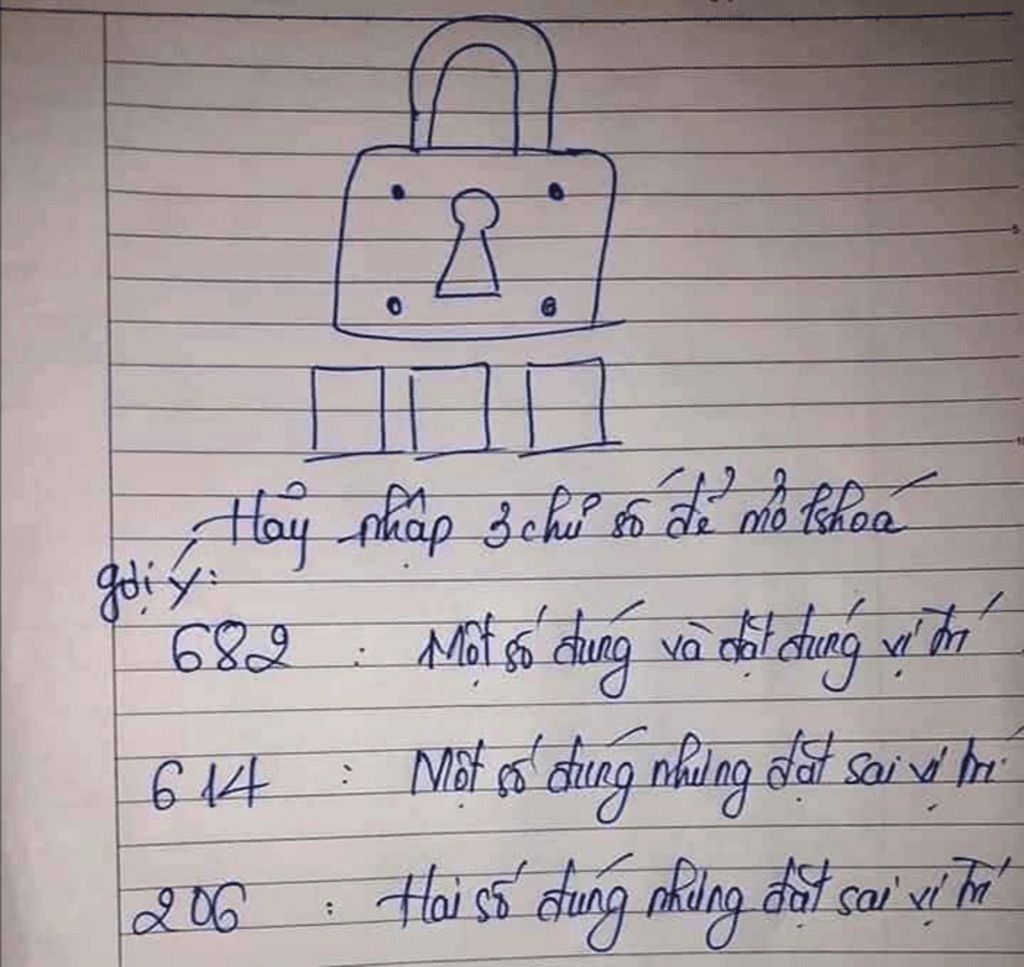 Hãy nhập 3 chữ số để mở khoá
gợi ý:
682 : Một số đúng và đặt đúng vị trí
614 : Một số đúng nhưng đặt sai vị trí
206 : Hai số đúng nhưng đặt sai vị trí